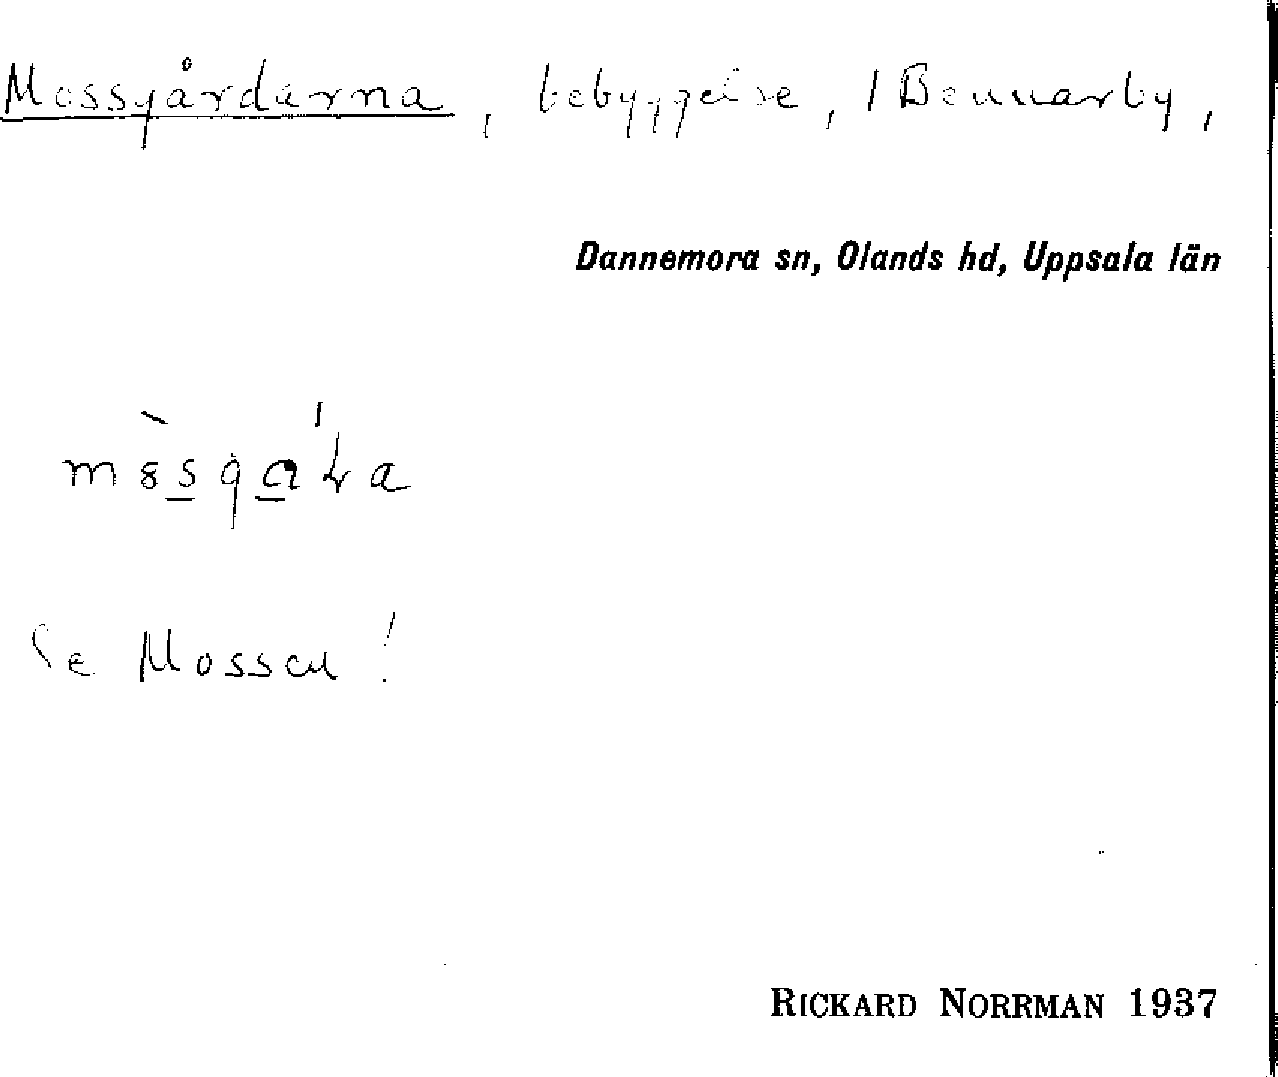 Mossgårdarna, bebyggelse, i Bennarby,
Dannemora sn, Olands hd, Uppsala län
Se Mossen!
RICKARD NORRMAN 1937